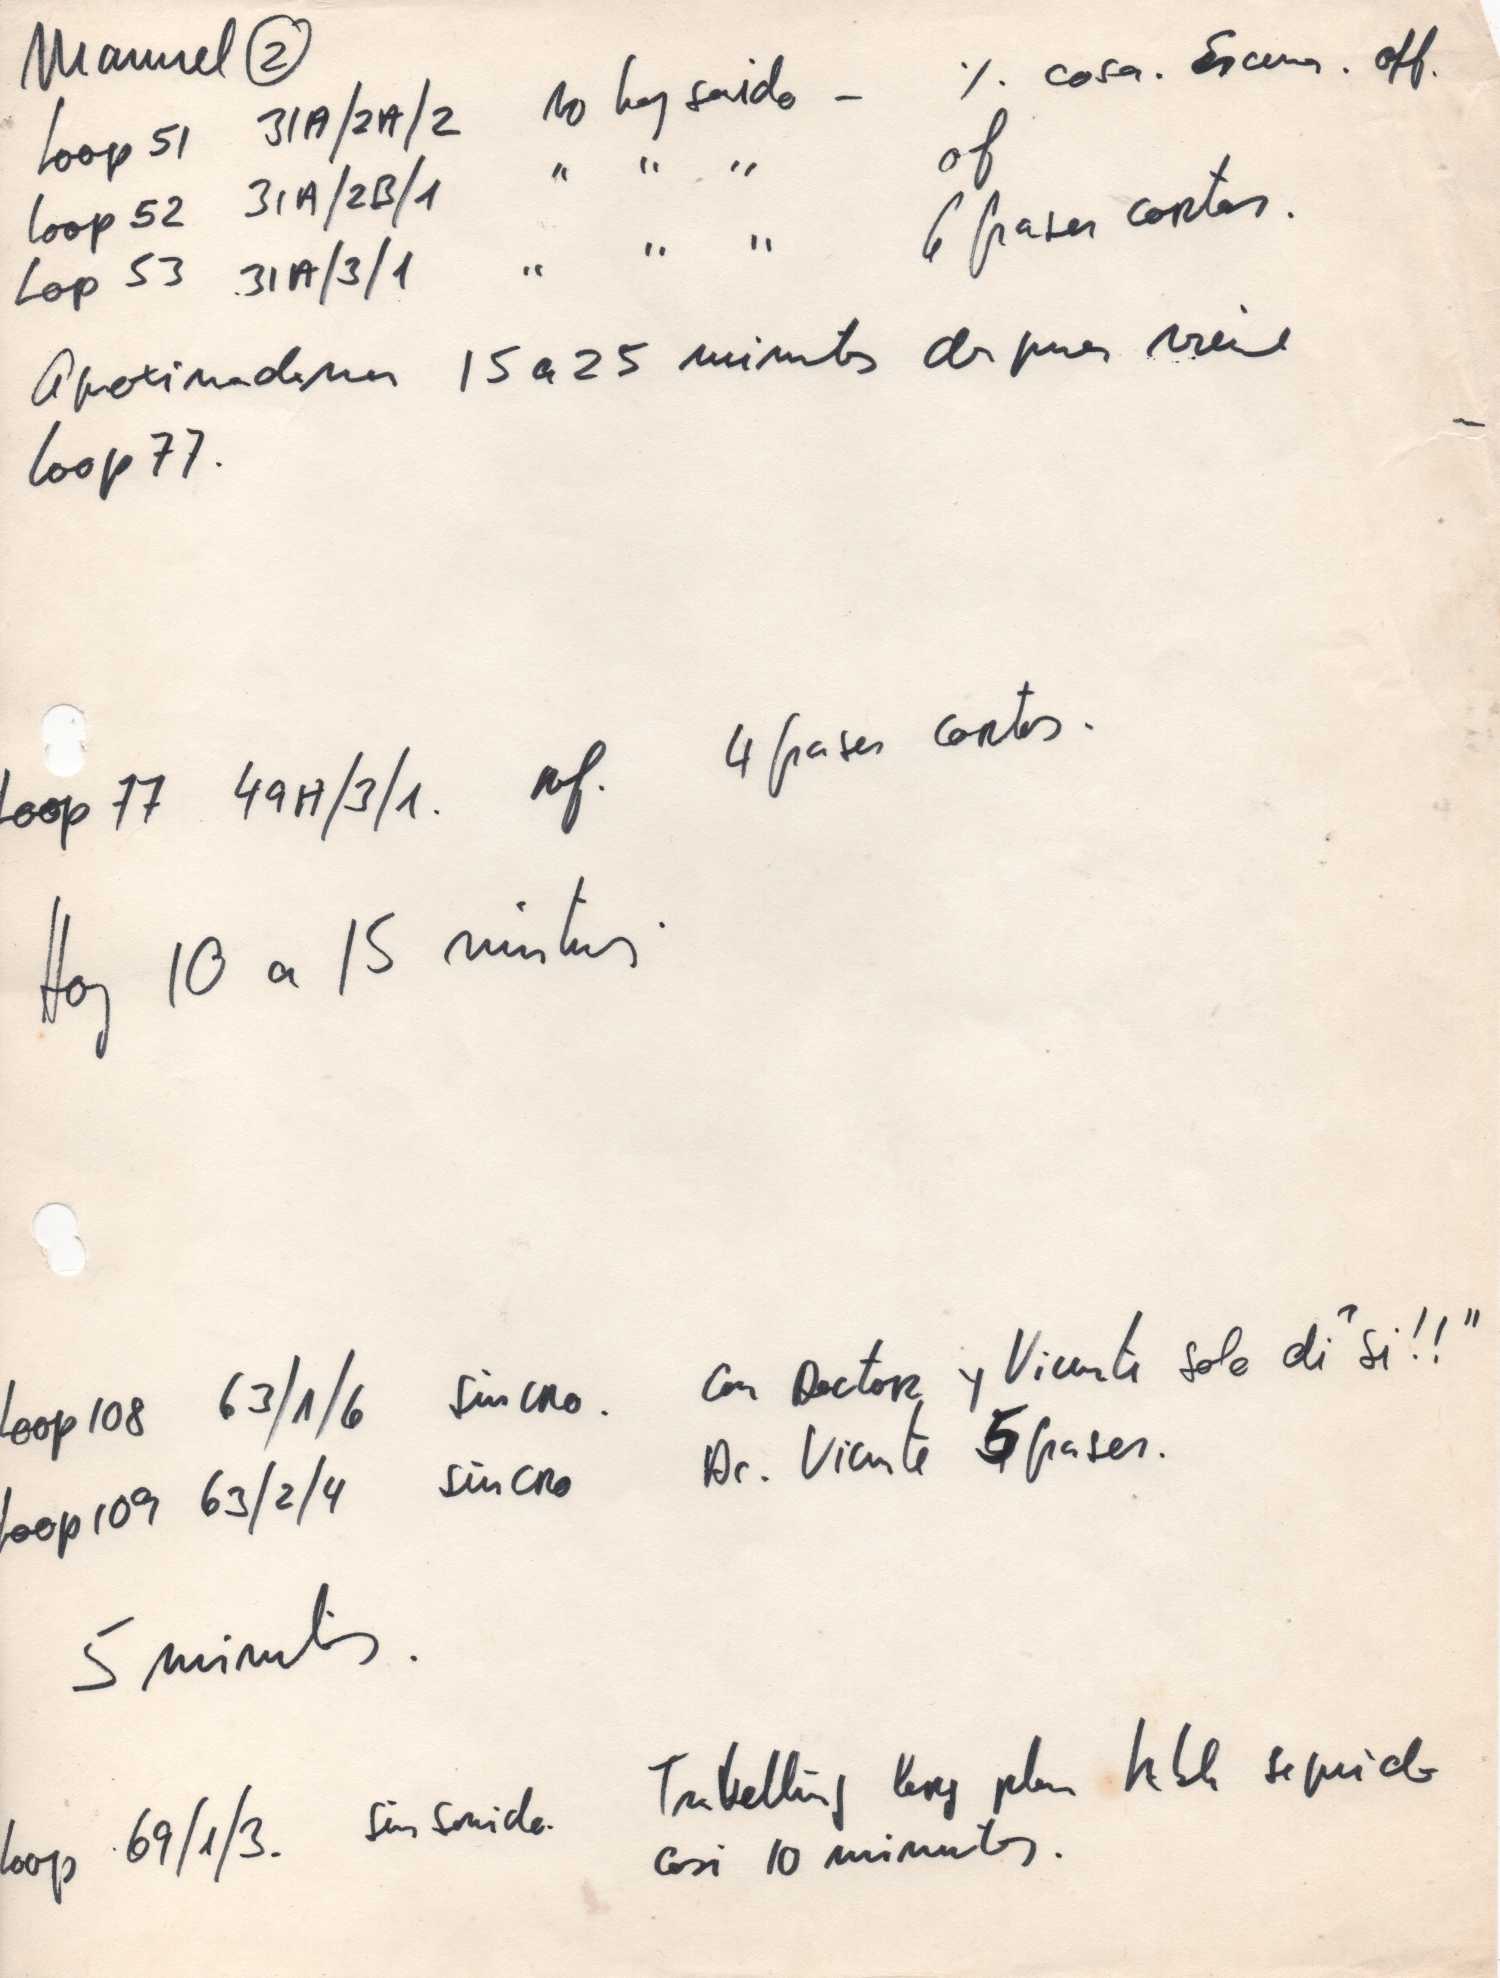 Manuel ②
Loop 51 31A/2A/2 no hay sonido - %. cosa. Escena. off.
Loop 52 31A/2B/1 " " " of
Loop 53 31A/3/1 " " " 6 frases cortas.
15 a 25 minutos despues viene
Loop 77.
Loop 77 49H/3/1. ref. 4 frases cortas.
Hay 10 a 15 minutos.
Loop 108 63/1/6 sincro. con Doctor y Vicente solo di "si!!"
Loop 109 63/2/4 sincro Dr. Vicente 5 frases.
5 minutos.
Loop 69/1/3. sin sonido. plan seguido
casi 10 minutos.